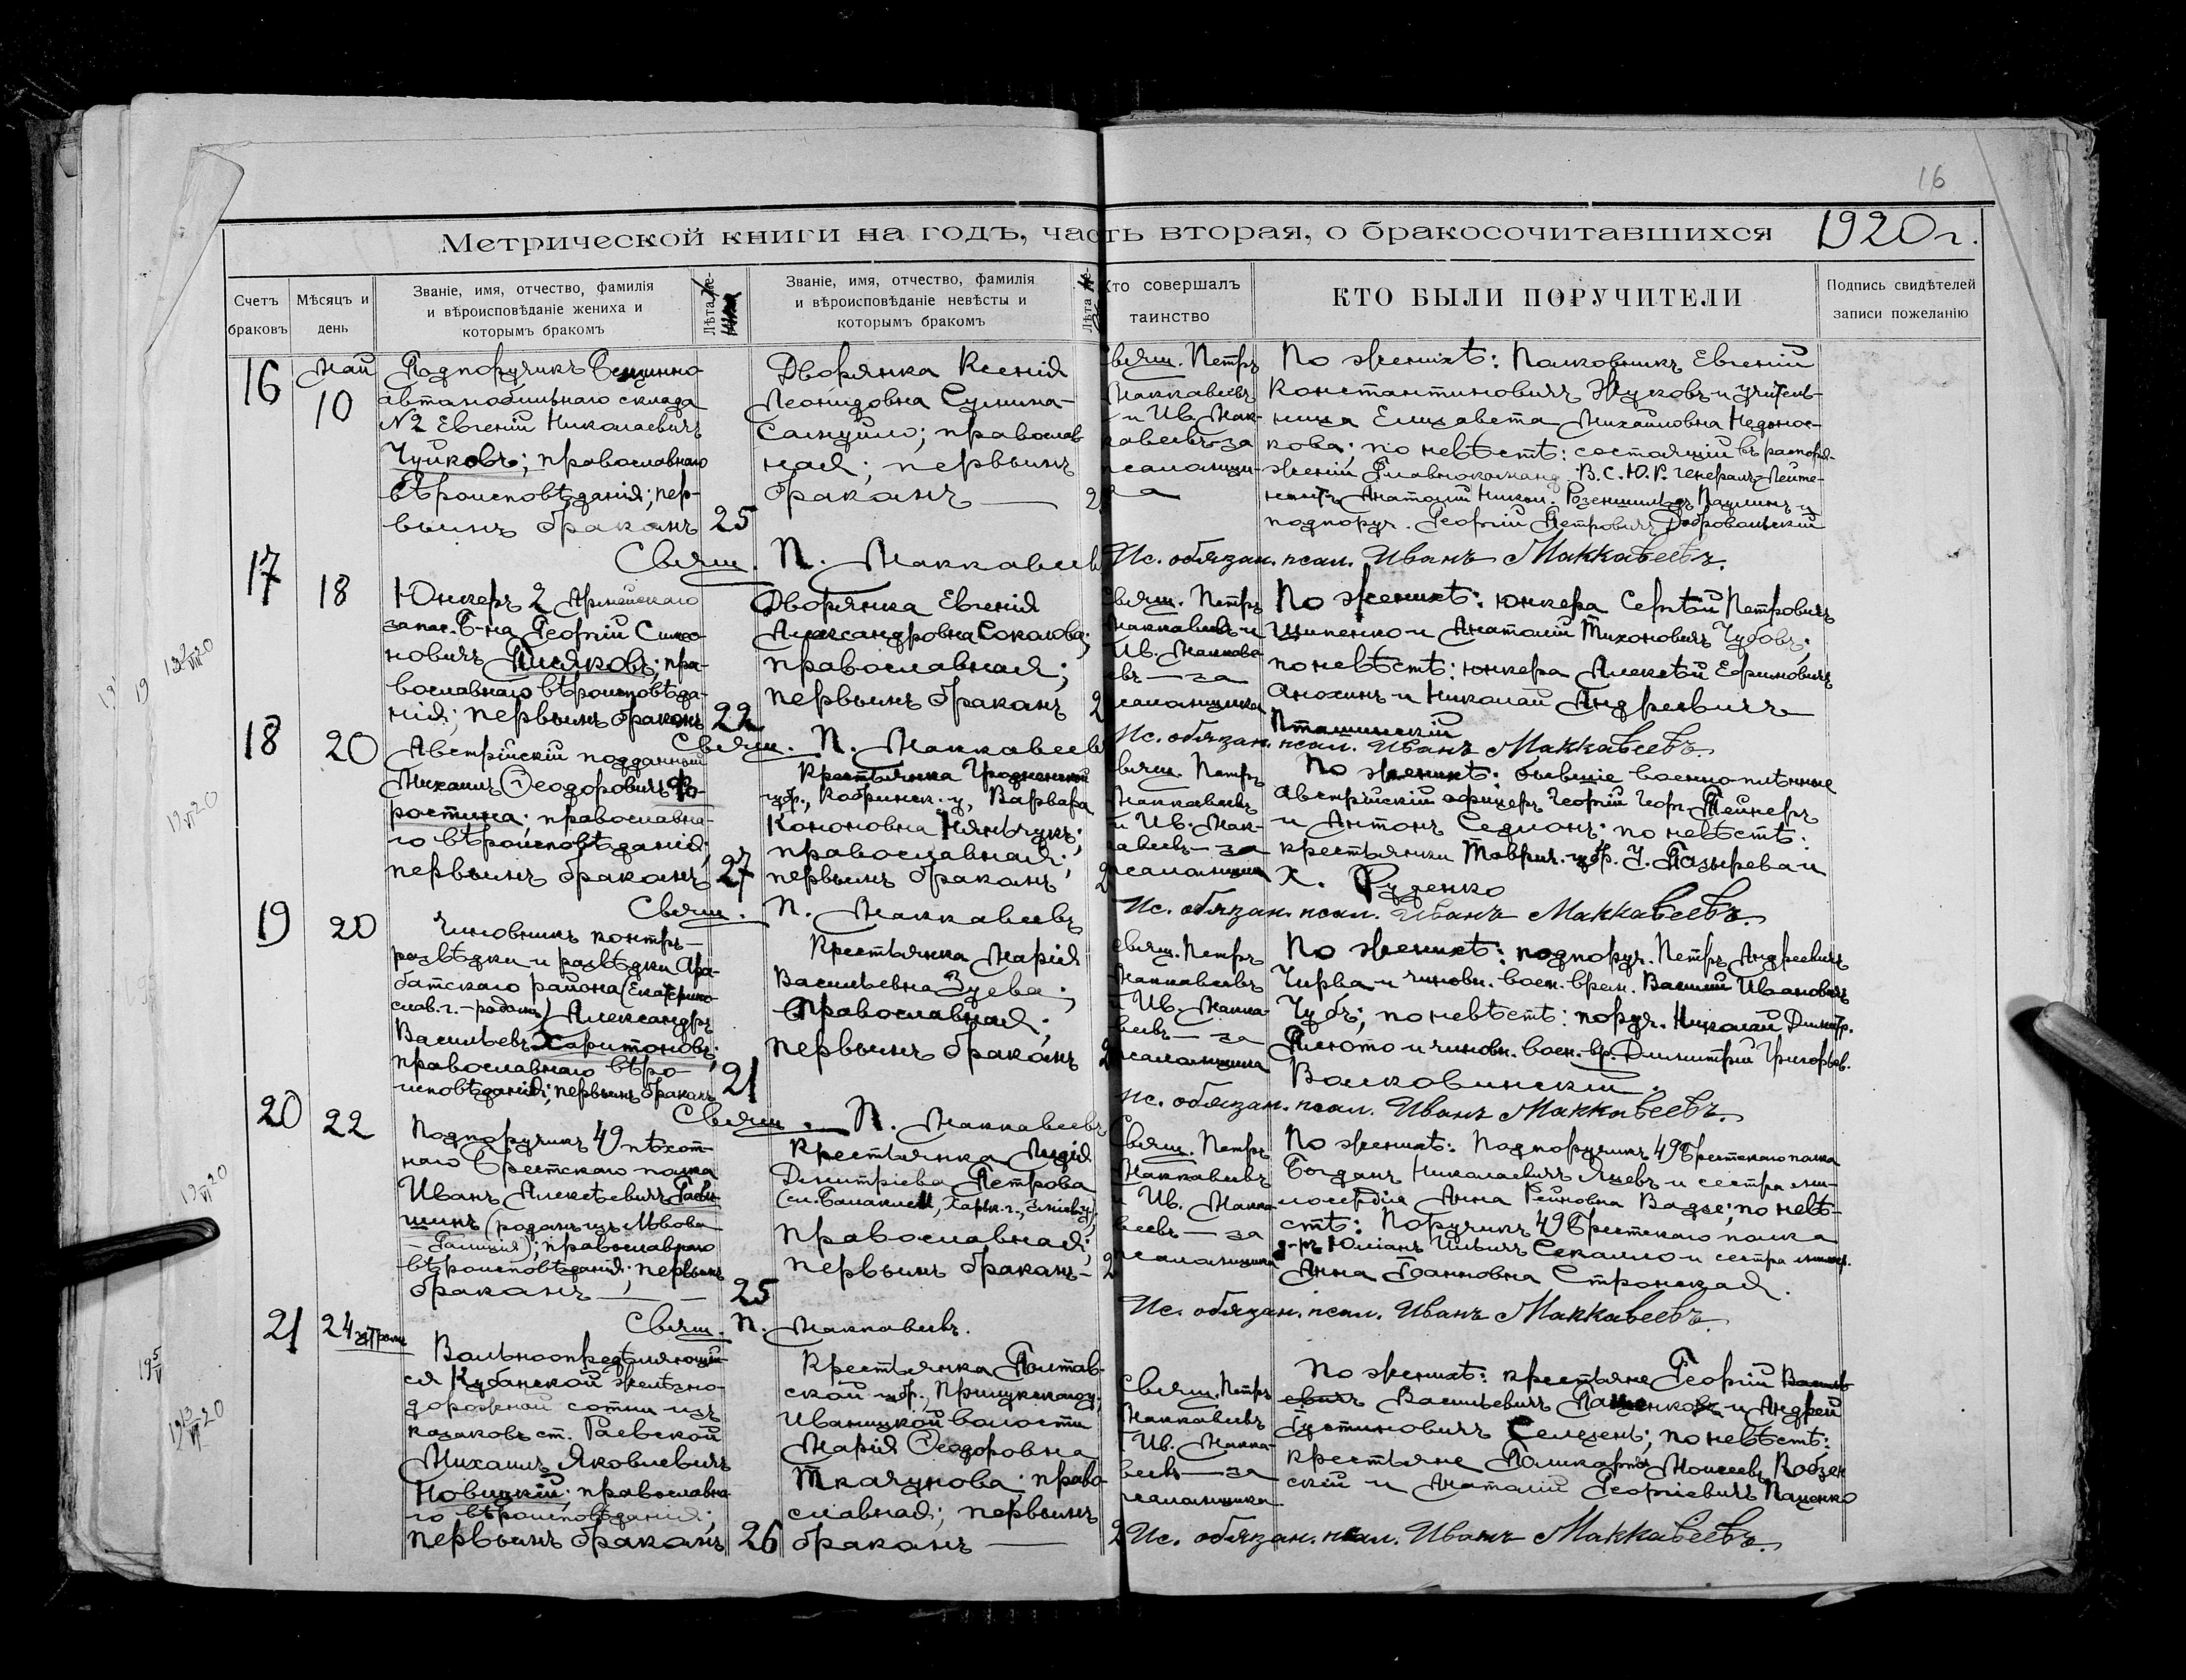 16
Метрической книги на годъ, часть вторая, о бракосочитавшихся 1920 г.
Счетъ браковъ
Мѣсяцъ и день
Званіе, имя, отчество, фамилія
и вѣроисповѣданіе жениха и
которымъ бракомъ
Лѣта
Званіе, имя, отчество, фамилія
и вѣроисповѣданіе невѣсты и
которымъ бракомъ
Лѣта
кто совершалъ
таинство
КТО БЫЛИ ПОРУЧИТЕЛИ
Подпись свидѣтелей
записи пожеланію
16
Май
10
Подпоручикъ
автомобильнаго склада
№2 Евгеній Николаевичъ
Чуйковъ; православнаго
вѣроисповѣданія; пер-
вымъ бракомъ
25
Дворянка Ксенія
Леонидовна Сулима-
Самуйло; православ
ная; первымъ
бракомъ
2
Свящ. Петръ
Маккавеевъ
и Ив. Мак-
кавеевъ-за
псаломщи-
ка
По женихѣ: Полковникъ Евгеній
Константиновичъ Жуковъ и учитель-
ница Елизавета Михаиловна Недонос-
кова; по невѣстѣ: состоящій въ распоря-
женіи Главнокоманд. В.С.Ю.Р. Генералъ-Лейте-
нантъ Анатолій Никол. Розеншильдъ Паулинъ и
подпоруч. Георгій Петровичъ Добровольскій
Свящ. П. Маккавеевъ
Ис. обязан. псал. Иванъ Маккавеевъ.
17
18
Юнкеръ 2 Армейскаго
запас. Б-на Георгій Симо-
новичъ; пра-
вославнаго вѣроисповѣда-
нія; первымъ бракомъ
22
Дворянка Евгенія
Александровна Соколова;
православная;
первымъ бракомъ
2
Свящ. Петръ
Маккавеевъ и
Ив. Маккаве
евъ — за
псаломщика
По женихѣ: юнкера Сергѣй Петровичъ
Щипенко и Анатолій Тихоновичъ Чубовъ;
по невѣстѣ: юнкера Алексѣй Ефимовичъ
Анохинъ и Николай Андреевичъ
Пташинскій
Свящ. П. Маккавеевъ
Ис. обязан. псал. Иванъ Маккавеевъ.
18
20
Австрійскій подданный
Михаилъ Ѳеодоровичъ Фо-
ростина; православна-
го вѣроисповѣданія;
первымъ бракомъ
27
Крестьянка Гродненской
губ., Кобринск. у., Варвара
Кононовна Нямчукъ;
православная;
первымъ бракомъ
2
Свящ. Петръ
Маккавеевъ
и Ив. Мак-
кавеевъ — за
псаломщика
По женихѣ: бывшіе военно плѣнные
австрійскій офицеръ Георгій Георг. Тейнеръ
и Антонъ Седлонъ; по невѣстѣ:
крестьянки Таврич. губ. У. Пазырева и
Х. Руденко
Свящ. П. Маккавеевъ
Ис. обязан. псал. Иванъ Маккавеевъ.
19
20
Чиновникъ контръ-
развѣдки и развѣдки Ара-
батскаго района (Екатерино-
слав. г. - родомъ) Александръ
Васильевъ Харитоновъ;
православнаго вѣро-
исповѣданія; первымъ бракомъ
21
Крестьянка Марія
Васильевна Зуева;
православная;
первымъ бракомъ
2
свящ. Петръ
Маккавеевъ
и Ив. Макка-
веевъ — за
псаломщика
По женихѣ: подпоруч. Петръ Андреевичъ
Чирва и чиновн. воен. врем. Василій Ивановичъ
Чубъ; по невѣстѣ: поруч. Николай Димитр.
Плюто и чиновн. воен. вр. Димитрій Григорьев.
Волковинскій.
Свящ. П. Маккавеевъ
Ис. обязан. псал. Иванъ Маккавеевъ.
20
22
Подпоручикъ 49 пѣхот-
наго Брестскаго полка
Иванъ Алексѣевичъ
(родомъ изъ Львова
- Галиція); православнаго
вѣроисповѣданія; первымъ
бракомъ
25
Крестьянка Лидія
Димитріева Петрова
(сл. Балаклея, Харьк. г., Зміевск. у);
православная;
первымъ бракомъ -
2
Свящ. Петръ
Маккавеевъ
и Ив. Макка
веевъ — за
псаломщика
По женихѣ: Подпоручикъ 49 Брестскаго полка
Богданъ Николаевичъ Яцевъ и сестра ми-
лосердія Анна Рейновна Вадзе; по невѣ-
стѣ: Поручикъ 49 Брестскаго полка
д-ръ Юліанъ Ильичъ Секалло и сестра милос.
Анна Іоанновна Стронская.
Свящ. П. Маккавеевъ.
Ис. обязан. псал. Иванъ Маккавеевъ.
21
24
Вольноопредѣляющій-
ся Кубанской желѣзно-
дорожной сотни изъ
казаковъ ст. Раевской
Михаилъ Яковлевичъ
Новицкій; православна
го вѣроисповѣданія;
первымъ бракомъ
26
Крестьянка Полтав-
ской губ., Прилукскаго у;
Иваницкой волости
Марія Ѳеодоровна
Ткачунова; право-
славная; первымъ
бракомъ
2
Свящ. Петръ
Маккавеевъ
и Ив. Макка-
веевъ — за
псаломщика
По женихѣ: крестьяне Георгій Василь
евичъ Васильевичъ и Андрей
Іустиновичъ Селезень; по невѣстѣ:
крестьяне Моисеевъ Кобзев
скій и Анатолій Георгіевичъ Паценко
Ис. обязан. псал. Иванъ Маккавеевъ.